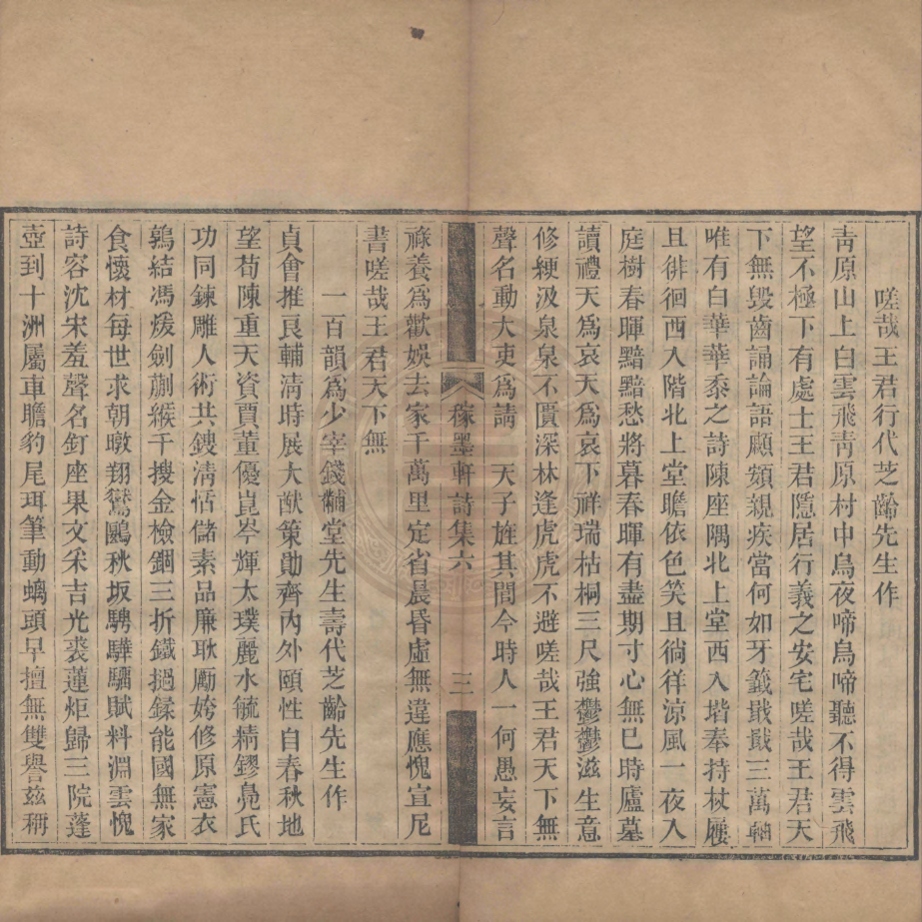 嗟哉王君行代芝齡先生作
靑原山上白雲飛靑原村中烏夜啼烏啼聽不得雲飛
望不極下有處士王君隱居行義之安宅嗟哉王君天
下無毀齒誦論語顧頦親疾當何如牙籤戢戢三萬軸
唯有白華華黍之詩陳座隅北上堂西入堦奉持杖屨
且徘徊西入階北上堂瞻依色笑且徜徉涼風一夜入
庭樹春暉黯黯愁將暮春暉有盡期寸心無巳時廬墓
讀禮天爲哀天爲哀下祥瑞枯桐三尺強鬱鬱滋生意
修綆汲泉泉不匱深林逢虎虎不避嗟哉王君天下無
聲名動大吏爲請 天子旌其閭今時人一何愚妄言
稼墨軒詩集六 三
祿養爲歡娛去家千萬里定省晨昏虛無違應愧宣尼
書嗟哉王君天下無
一百韻爲少宰錢黼堂先生壽代芝齡先生作
貞會推良輔淸時展大猷策勛齊內外頤性自春秋地
望荀陳重天資賈董優崑岑輝太璞麗水毓精鏐鳧氏
功同鍊雕人術共鎪淸恬儲素品廉耻勵姱修原憲衣
鶉結馮煖劍蒯緱千搜金檢錮三折鐵撾鍒能國無家
食懷材每世求朝暾翔鷟鷗秋坂騁驊騮賦料淵雲愧
詩容沈宋羞聲名釘座果文采吉光裘蓮炬歸三院蓬
壺到十洲屬車瞻豹尾珥筆動螭頭早擅無雙譽兹稱